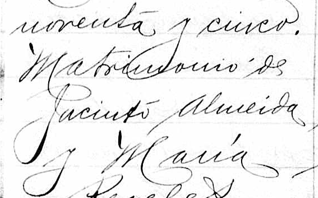 noventa y cinco.
Matrimonio de
Jacinto Almeida,
y María